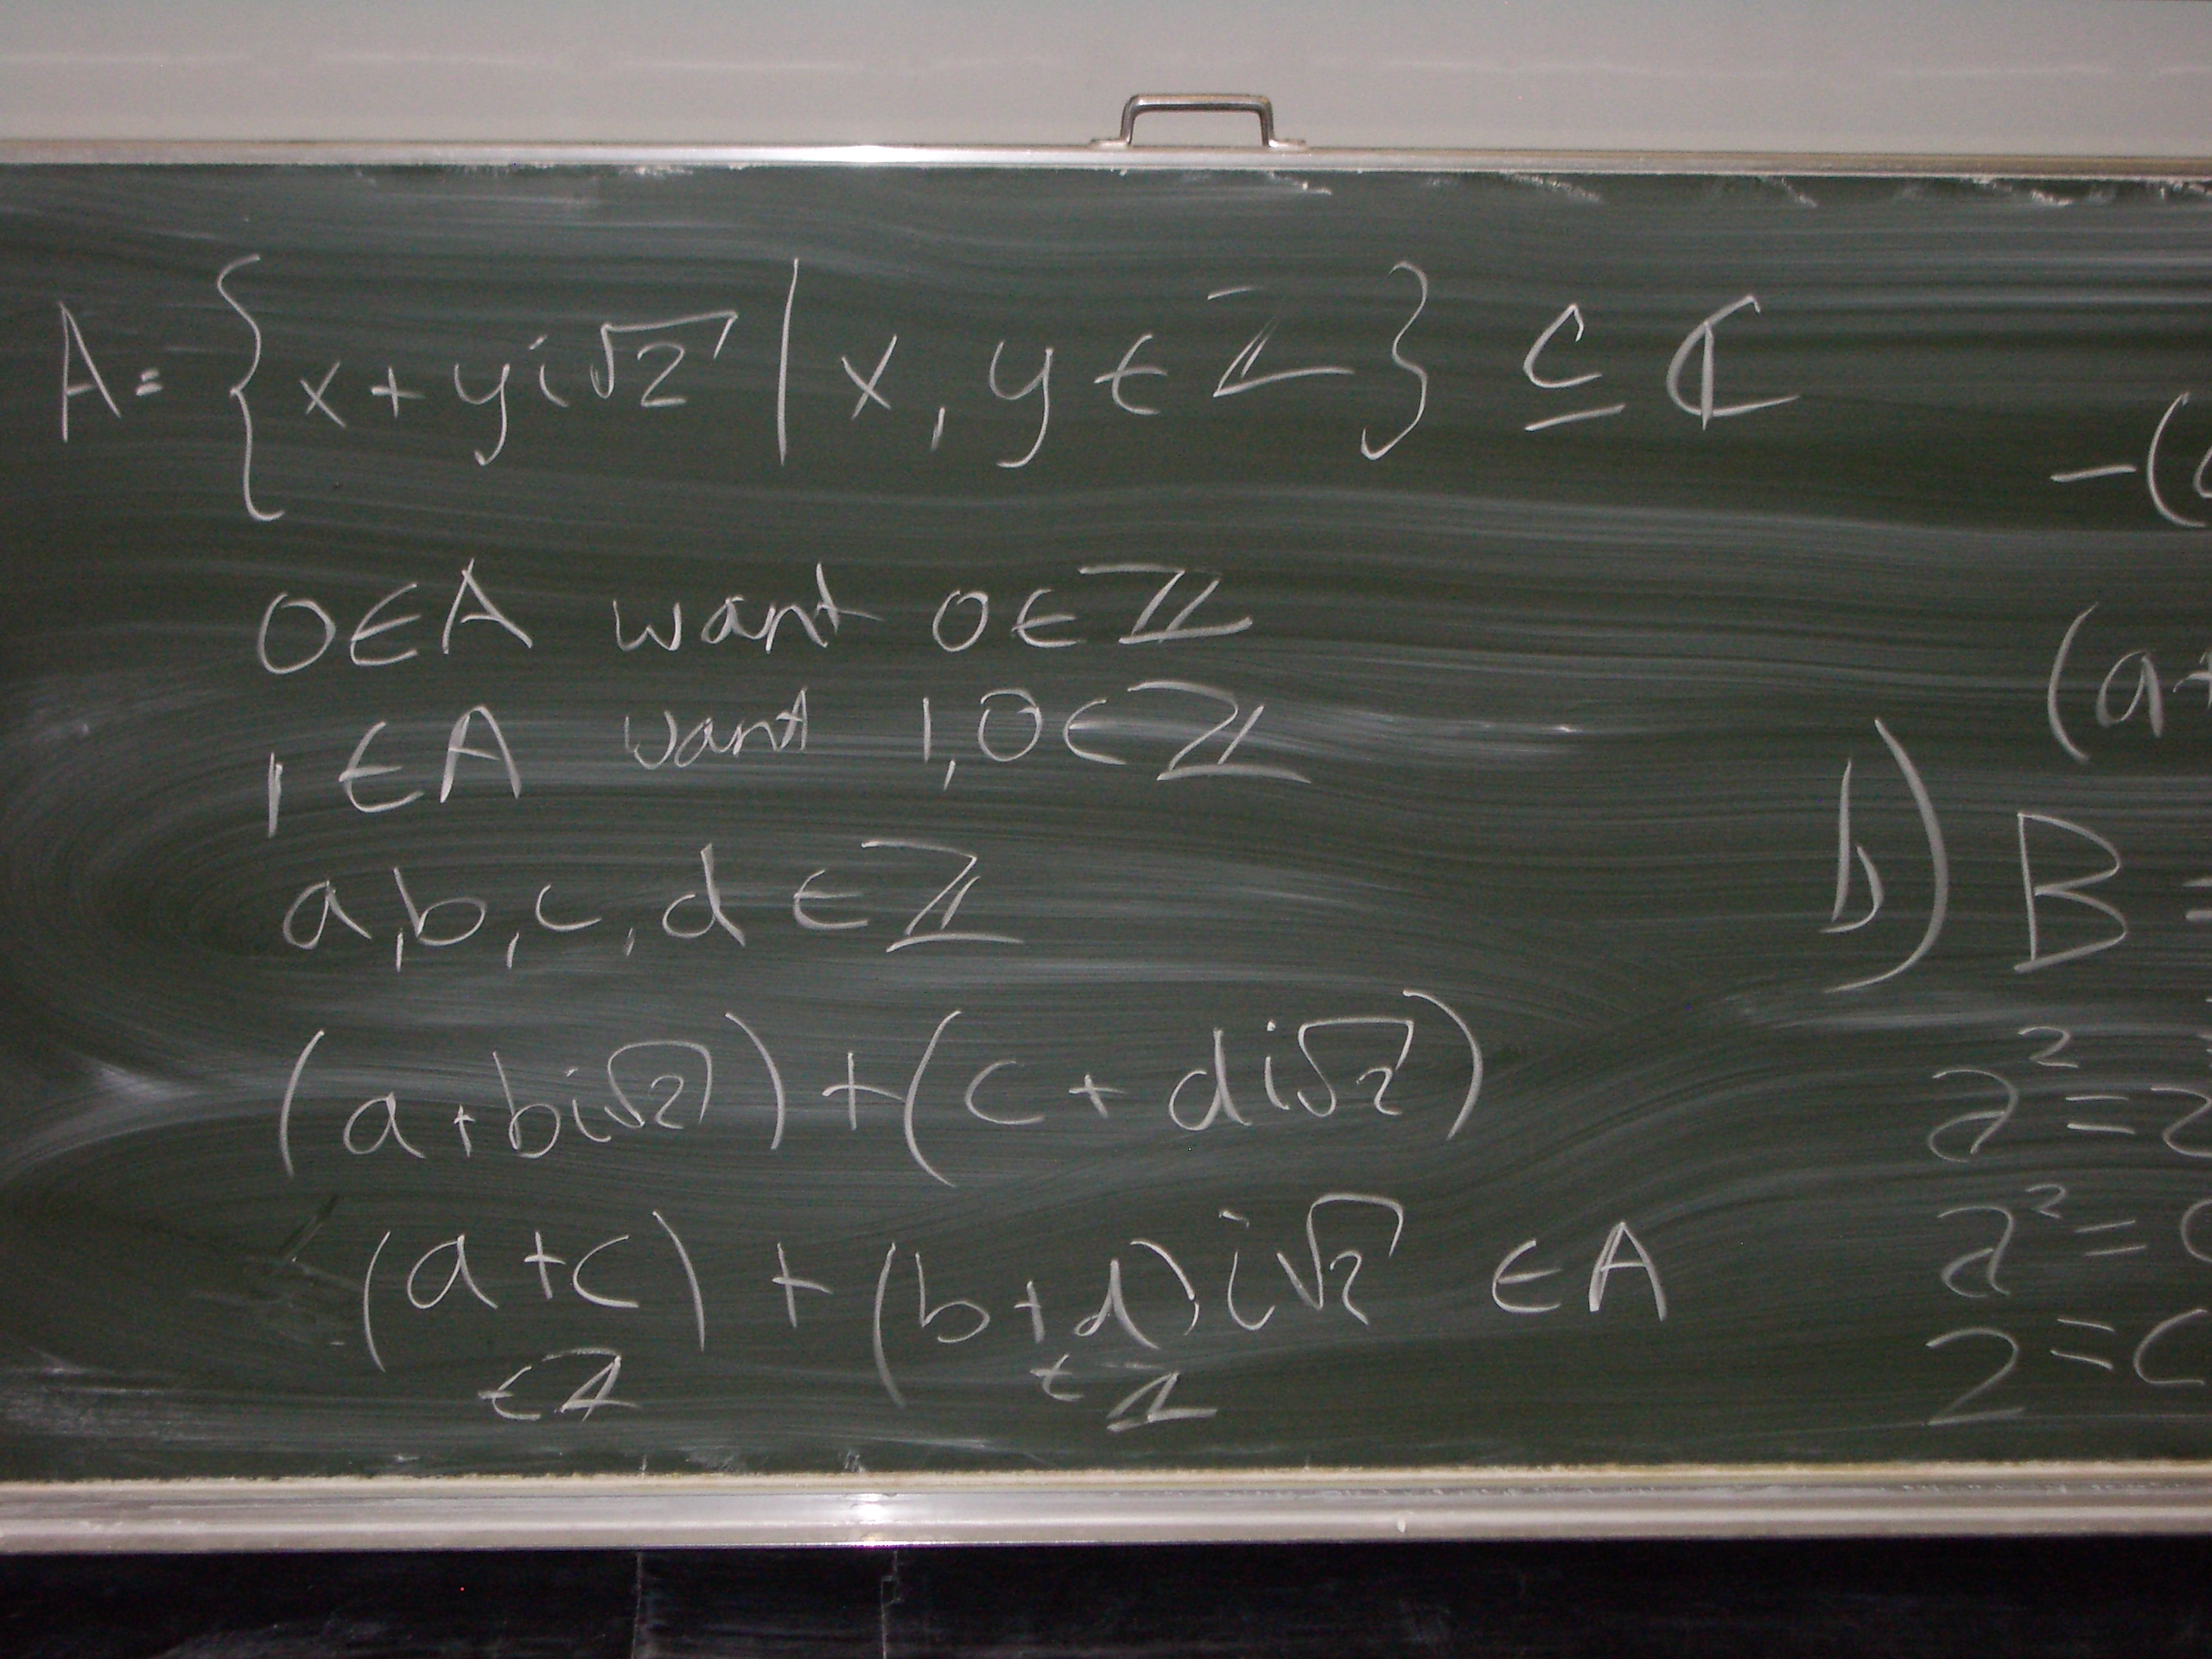 A = { x + yi√2 | x, y ∈ ℤ } ⊆ ℂ
0 ∈ A want 0 ∈ ℤ
1 ∈ A want 1, 0 ∈ ℤ
a, b, c, d ∈ ℤ
(a + bi√2) + (c + di√2)
(a + c) + (b + d) i√2 ∈ A
∈ ℤ ∈ ℤ
-(
(a+
b) B =
a² = 2
a² =
2 = C